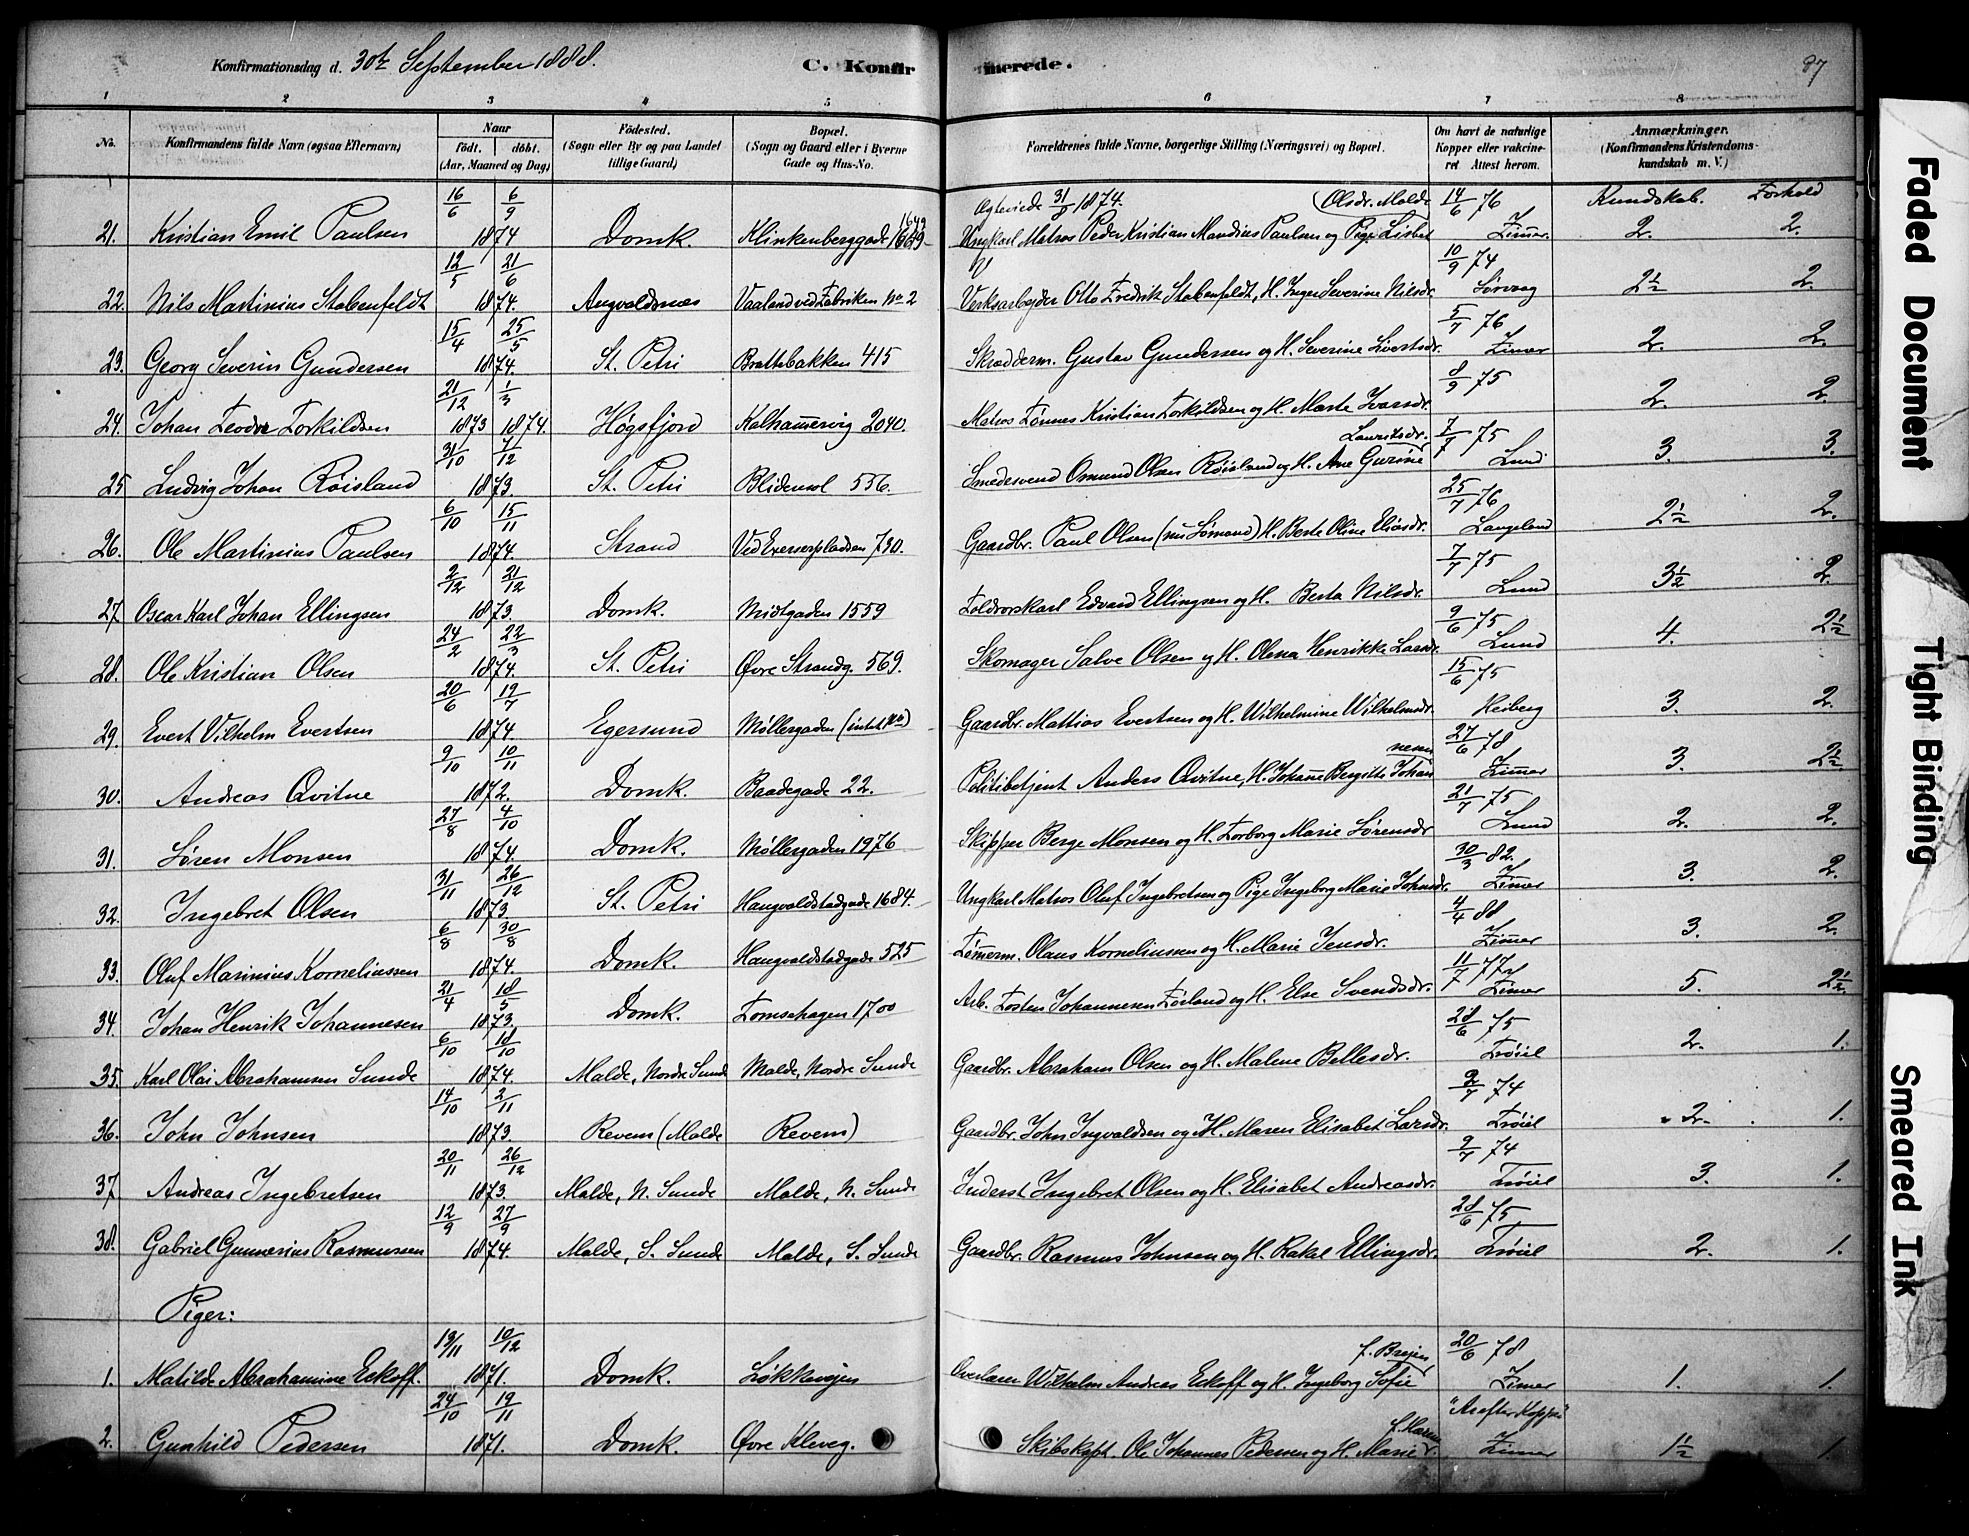 Konfirmationsdag d. 30te September 1888. C. Konfirmerede. 87
1 2 3 4 5 6 7 8
No. Konfirmandens fulde Navn (ogsaa Efternavn) Naar født. døbt. (Aar, Maaned og Dag) Fødested. (Sogn eller By og paa Landet tillige Gaard) Bopæl. (Sogn og Gaard eller i Byerne Gade og Hus-No. Forældrenes fulde Navne, borgerlige Stilling (Næringsvei) og Bopæl. Om havt de naturlige Kopper eller vakcineret Attest herom. Anmærkninger. (Konfirmandens Kristendomskundskab m. V.)
Kundskab. Forhold
16/6 6/9 Ægteviede 31/8 1874. Olsdr. Molde 14/6 76
21. Kristian Emil Paulsen 1874 Domk. Klinkenberggade 1649 Ungkarl Matros Peder Kristian Mandius Paulsen og Pige Lisbet Zimmer. 2. 2.
12/5 21/6 10/9 74
22. Nils Martinius Stabenfeldt 1874. Augvaldsnæs Vaaland ved Fabriken No 2 Verksarbejder Otto Fredrik Stabenfeldt, H. Inger Severine Nilsdr. Sørvaag 2½ 2.
15/4 25/5 5/7 76
23. Georg Severin Gundersen 1874. St. Petri Brattebakken 415 Skrædderm. Gustav Gundersen og H. Severine Sivertsdr. Zimer 2. 2.
21/12 1/3 8/9 75
24. Johan Teodor Torkildsen 1873 1874. Høgsfjord Kalhamervig 2040. Matros Tønnes Kristian Torkildsen og H. Marte Ivarsdr. 2. 2.
31/10 7/12 Lauritsdr. 7/7 75
25 Ludvig Johan Røisland 1873. St. Petri Blidensol 536. Smedesvend Osmund Olsen Røisland og H. Ane Gurine Lund 3. 3.
6/10 15/11 25/7 76
26. Ole Martinius Paulsen 1874. Strand Ved Exerserpladsen 730. Gaardbr. Paul Olsen (nu Sømand) H. Berte Oline Eliasdr. Langeland 2½ 2.
2/12 21/12 7/7 75
27. Oscar Karl Johan Ellingsen 1873. Domk. Nridtgaden 1559 Toldrorskarl Edvard Ellingsen og H. Berta Nilsdr. Lund 3½ 2
24/2 22/3 9/6 75
28. Ole Kristian Olsen 1874. St. Petri Øvre Strandg. 569. Skomager Salve Olsen og H. Olena Henrikke Larsdr. Lund 4. 2½
20/6 19/7 15/6 75
29. Evert Vilhelm Evertsen 1874. Egersund Møllergaden (intet No) Gaardbr. Mattias Evertsen og H. Wilhelmine Wilhelmsdr. Heiberg 3. 2.
9/10 10/11 nesen 27/6 78
30. Andreas Qvitne 1872. Domk. Baadegade 22. Politibetjent Anders Qvitne, H. Johanne Bergitte Johan Zimer 3. 2½.
27/8 4/10 21/7 75
31. Søren Monsen 1874. Domk. Møllergaden 1976 Skipper Berge Monsen og H. Torborg Marie Sørensdr Lund 2. 2.
31/11 26/12 30/3 82
32. Ingebret Olsen 1873. St. Petri Haugvaldstadgade 1684. Ungkarl Matros Oluf Ingebretsen og Pige Ingeborg Marie Johnsdr. Zimer 3. 2.
6/8 30/8 4/4 88
33. Oluf Marinius Korneliussen 1874. Domk. Haugvaldstadgade 525 Tømerm. Olaus Korneliussen og H. Marie Jensdr. Zimer 3. 2.
21/4 18/5 11/7 77
34. Johan Henrik Johannesen 1873. Domk. Tomsehagen 1700 Arb. Tosten Johannesen Tørland og H. Else Svendsdr. Zimer 5. 2½.
6/10 18/10 28/6 75
35. Karl Olai Abrahamsen Sunde 1874. Malde, Nordre Sunde Malde, Nordre Sunde Gaardbr. Abraham Olsen og H. Malene Bellesdr. Trøiel 2. 1.
14/10 2/11 9/7 74
36. John Johnsen 1873. Revem (Malde Revem) Gaardbr. John Ingvaldsen og H. Maren Elisabet Larsdr. Trøiel 2. 1.
20/11 26/12 9/7 74
37 Andreas Ingebretsen 1873. Malde, N. Sunde Malde, N. Sunde Inderst Ingebret Olsen og H. Elisabet Andreasdr. Trøiel 3. 1.
12/9 27/9 28/6 75
38. Gabriel Gunnerius Rasmussen 1874. Malde, S. Sunde Malde, S. Sunde Gaardbr. Rasmus Johnsen og H. Rakel Ellingsdr. Trøiel 2. 1.
Piger:
13/11 10/12 f. Brejen 20/6 78
1. Matilde Abrahamine Eckoff. 1871. Domk. Løkkevejen Overlærer Wilhelm Andreas Eckoff og H. Ingeborg Sofie Zimer 1. 1.
24/10 19/11
2. Gunhild Pedersen 1871. Domk. Øvre Kleveg. Skibskapt. Ole Johannes Pedersen og H. Marie Zimer 1½ 1.
Faded Document
Tight Binding
Smeared Ink